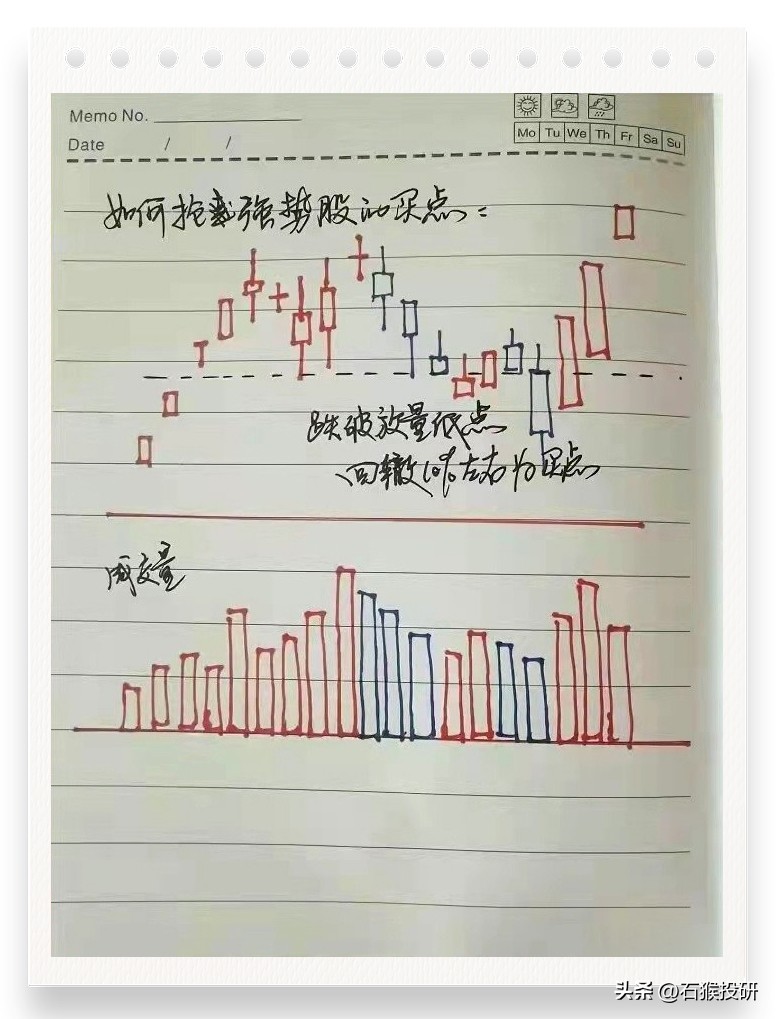 Memo No.
Date / /
Mo Tu We Th Fr Sa Su
如何抢到强势股的买点：
跌破放量低点
回撤10%左右为买点
成交量
头条 @石猴投研